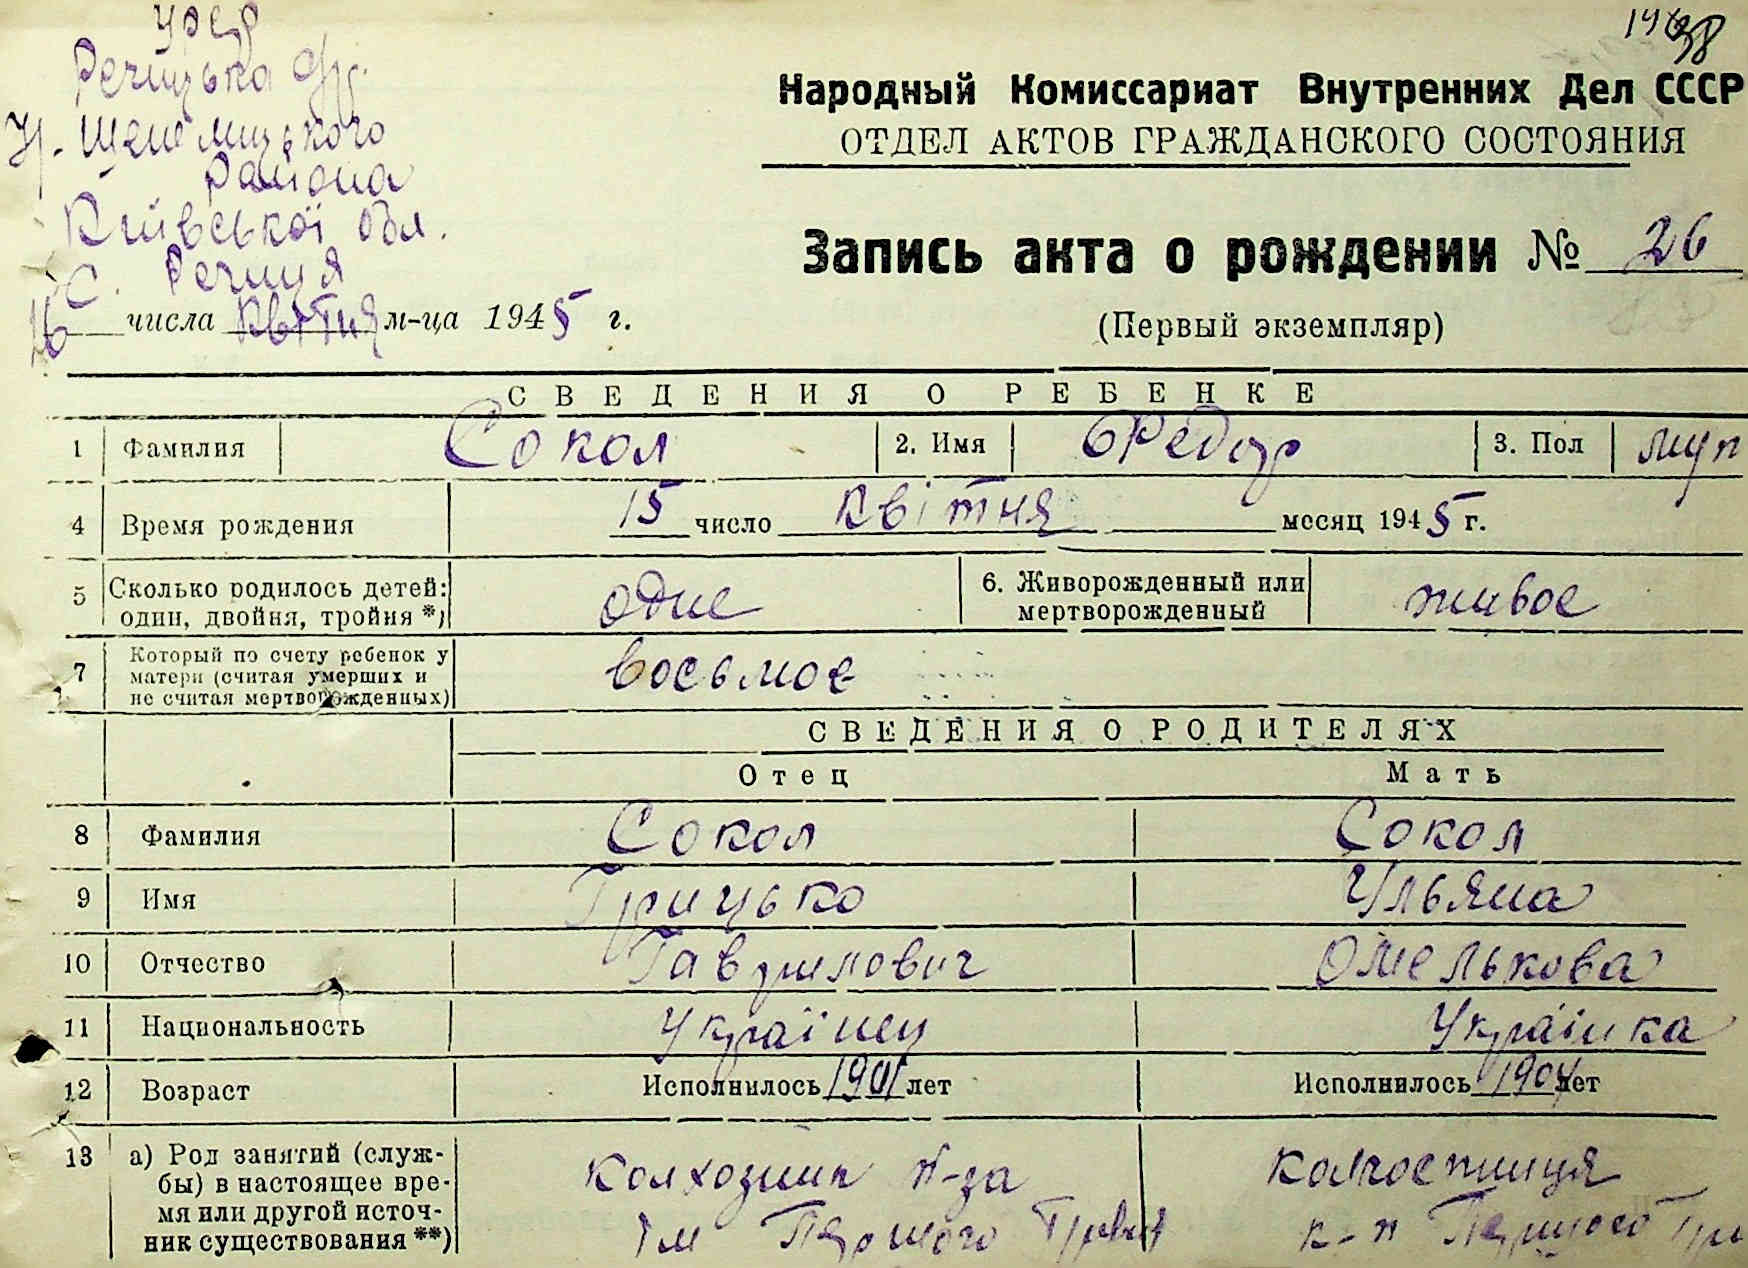 УРСР
Речицька С/р.
Н-Шепелицького
Района
Київської обл.
С. Речиця
16 числа квітня м-ца 1945 г.
Народный Комиссариат Внутренних Дел СССР
ОТДЕЛ АКТОВ ГРАЖДАНСКОГО СОСТОЯНИЯ
Запись акта о рождении № 26
(Первый экземпляр)
СВЕДЕНИЯ О РЕБЕНКЕ
1 Фамилия Сокол 2. Имя Федор 3. Пол муж
4 Время рождения 15 число квітня месяц 1945 г.
5 Сколько родилось детей: один, двойня, тройня *) одне 6. Живорожденный или мертворожденный живое
7 Который по счету ребенок у матери (считая умерших и не считая мертворожденных) восьмое
СВЕДЕНИЯ О РОДИТЕЛЯХ
Отец Мать
8 Фамилия Сокол Сокол
9 Имя Грицько Ульяна
10 Отчество Гаврилович Омелькова
11 Национальность Українец Українка
12 Возраст Исполнилось 1901 лет Исполнилось 1904 лет
13 а) Род занятий (служ-
бы) в настоящее вре-
мя или другой источ-
ник существования **)
колхозник к-за
Ім Першого Травня
колгоспниця
к-п Першого